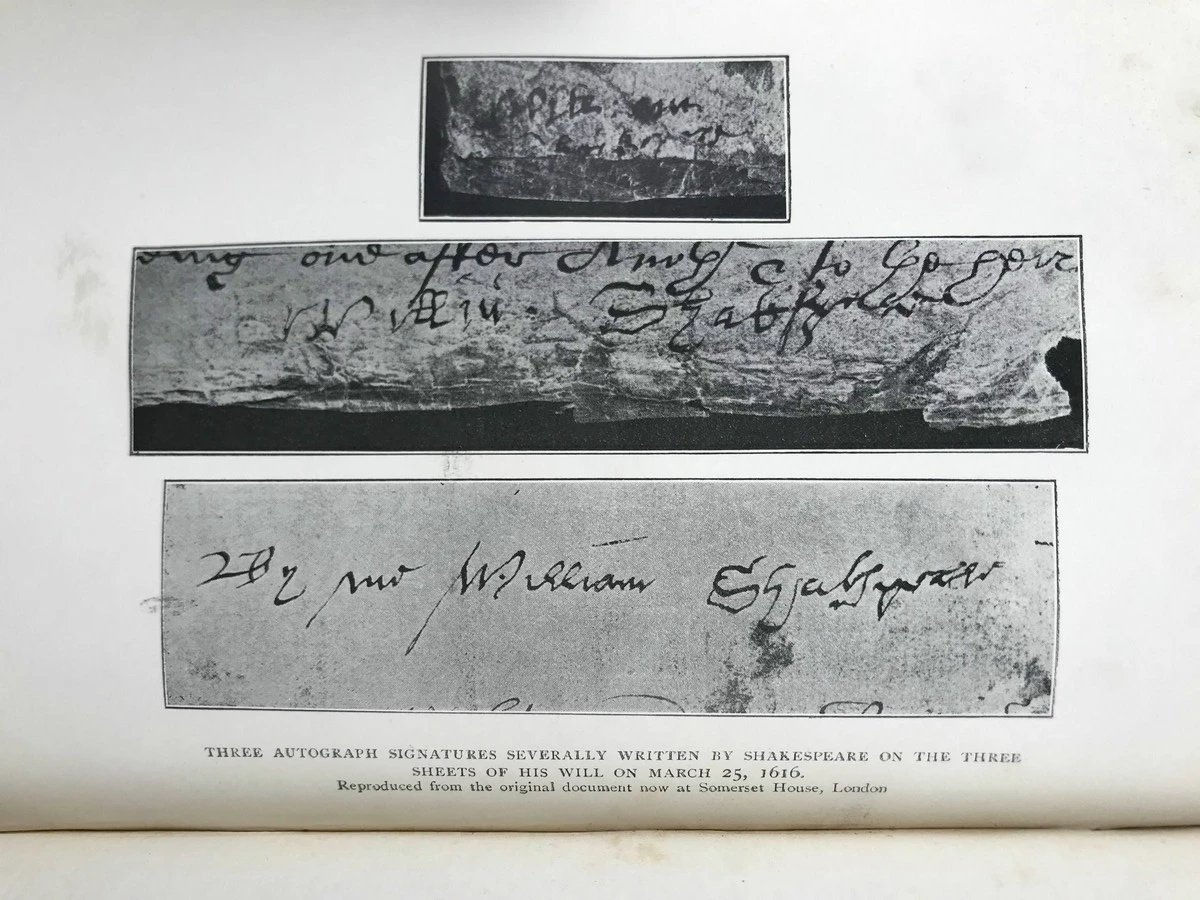 Willm Shakspere
By me William Shakspeare
THREE AUTOGRAPH SIGNATURES SEVERALLY WRITTEN BY SHAKESPEARE ON THE THREE
SHEETS OF HIS WILL ON MARCH 25, 1616.
Reproduced from the original document now at Somerset House, London